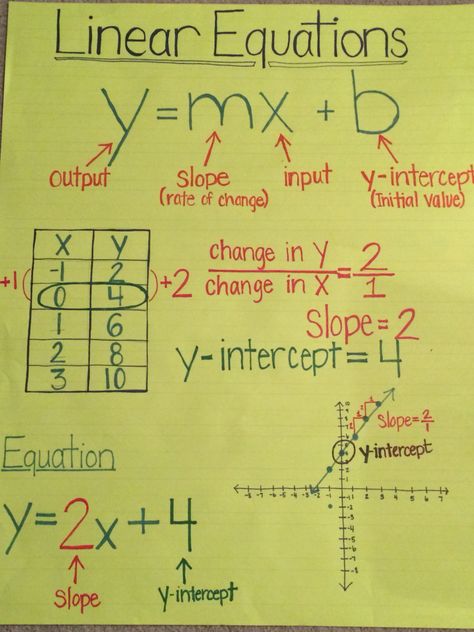 Linear Equations
y=mx+b
output slope input y-intercept
(rate of change) (Initial value)
x y
-1 2
+1 0 4 +2
1 6
2 8
3 10
change in y = 2
change in x 1
Slope=2
y-intercept=4
Slope=2/1
y-intercept
Equation
y=2x+4
Slope y-intercept